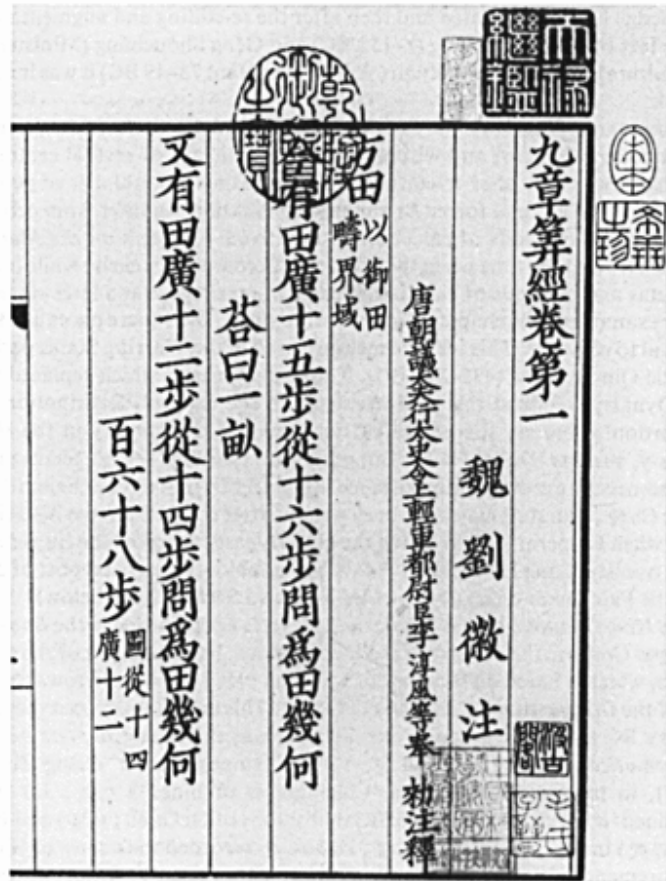 九章筭經卷第一
魏劉徽注
唐朝議大夫行太史令上輕車都尉臣李淳風等奉 勑注釋
方田 以御田
疇界域
今有田廣十五步從十六步問爲田幾何
荅曰一畝
又有田廣十二步從十四步問爲田幾何
百六十八步 圖從十四
廣十二
天祿繼鑑
乾隆御覽之寶
希世之珍